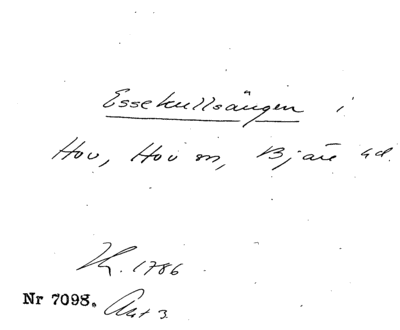 Essekullsängen i
Hov, Hov sn, Bjäre hd.
Kr. 1786
Nr 7098. Akt 3